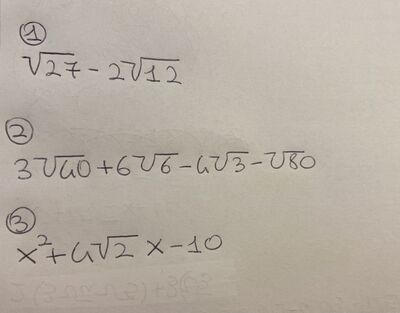 ①
√27 - 2√12
②
3√40 + 6√6 - 4√3 - √80
③
x² + 4√2 x - 10